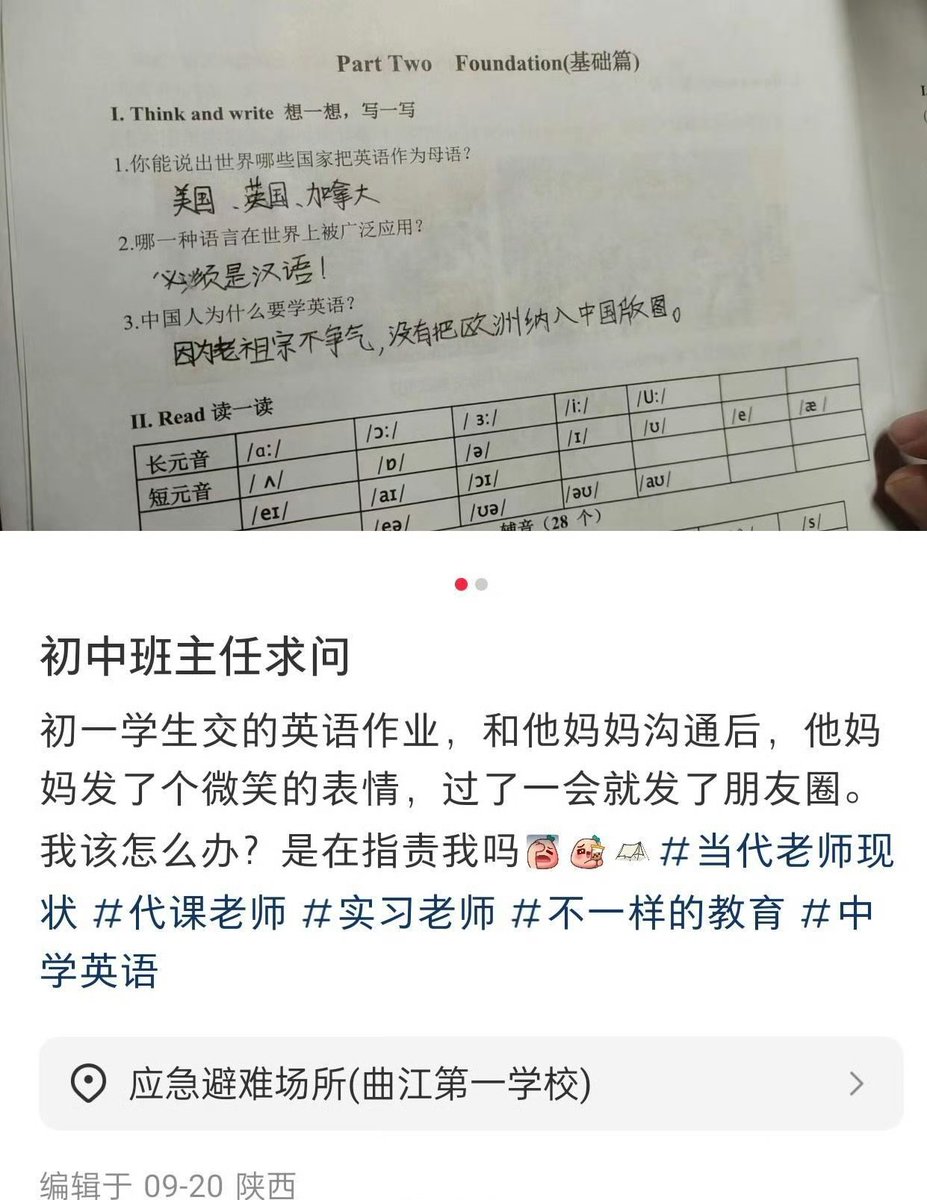 Part Two Foundation(基础篇)
I. Think and write 想一想，写一写
1.你能说出世界哪些国家把英语作为母语？
美国、英国、加拿大
2.哪一种语言在世界上被广泛应用？
必须是汉语！
3.中国人为什么要学英语？
因为老祖宗不争气，没有把欧洲纳入中国版图。
II. Read 读一读
长元音 /ɑ:/ /ɔ:/ /ɜ:/ /i:/ /U:/
短元音 /ʌ/ /ɒ/ /ə/ /ɪ/ /ʊ/ /e/ /æ/
/eɪ/ /aɪ/ /ɔɪ/ /əʊ/ /aʊ/
/eə/ /ʊə/
辅音（28 个）
/s/
初中班主任求问
初一学生交的英语作业，和他妈妈沟通后，他妈
妈发了个微笑的表情，过了一会就发了朋友圈。
我该怎么办？是在指责我吗 #当代老师现
状 #代课老师 #实习老师 #不一样的教育 #中
学英语
应急避难场所(曲江第一学校)
编辑于 09-20 陕西